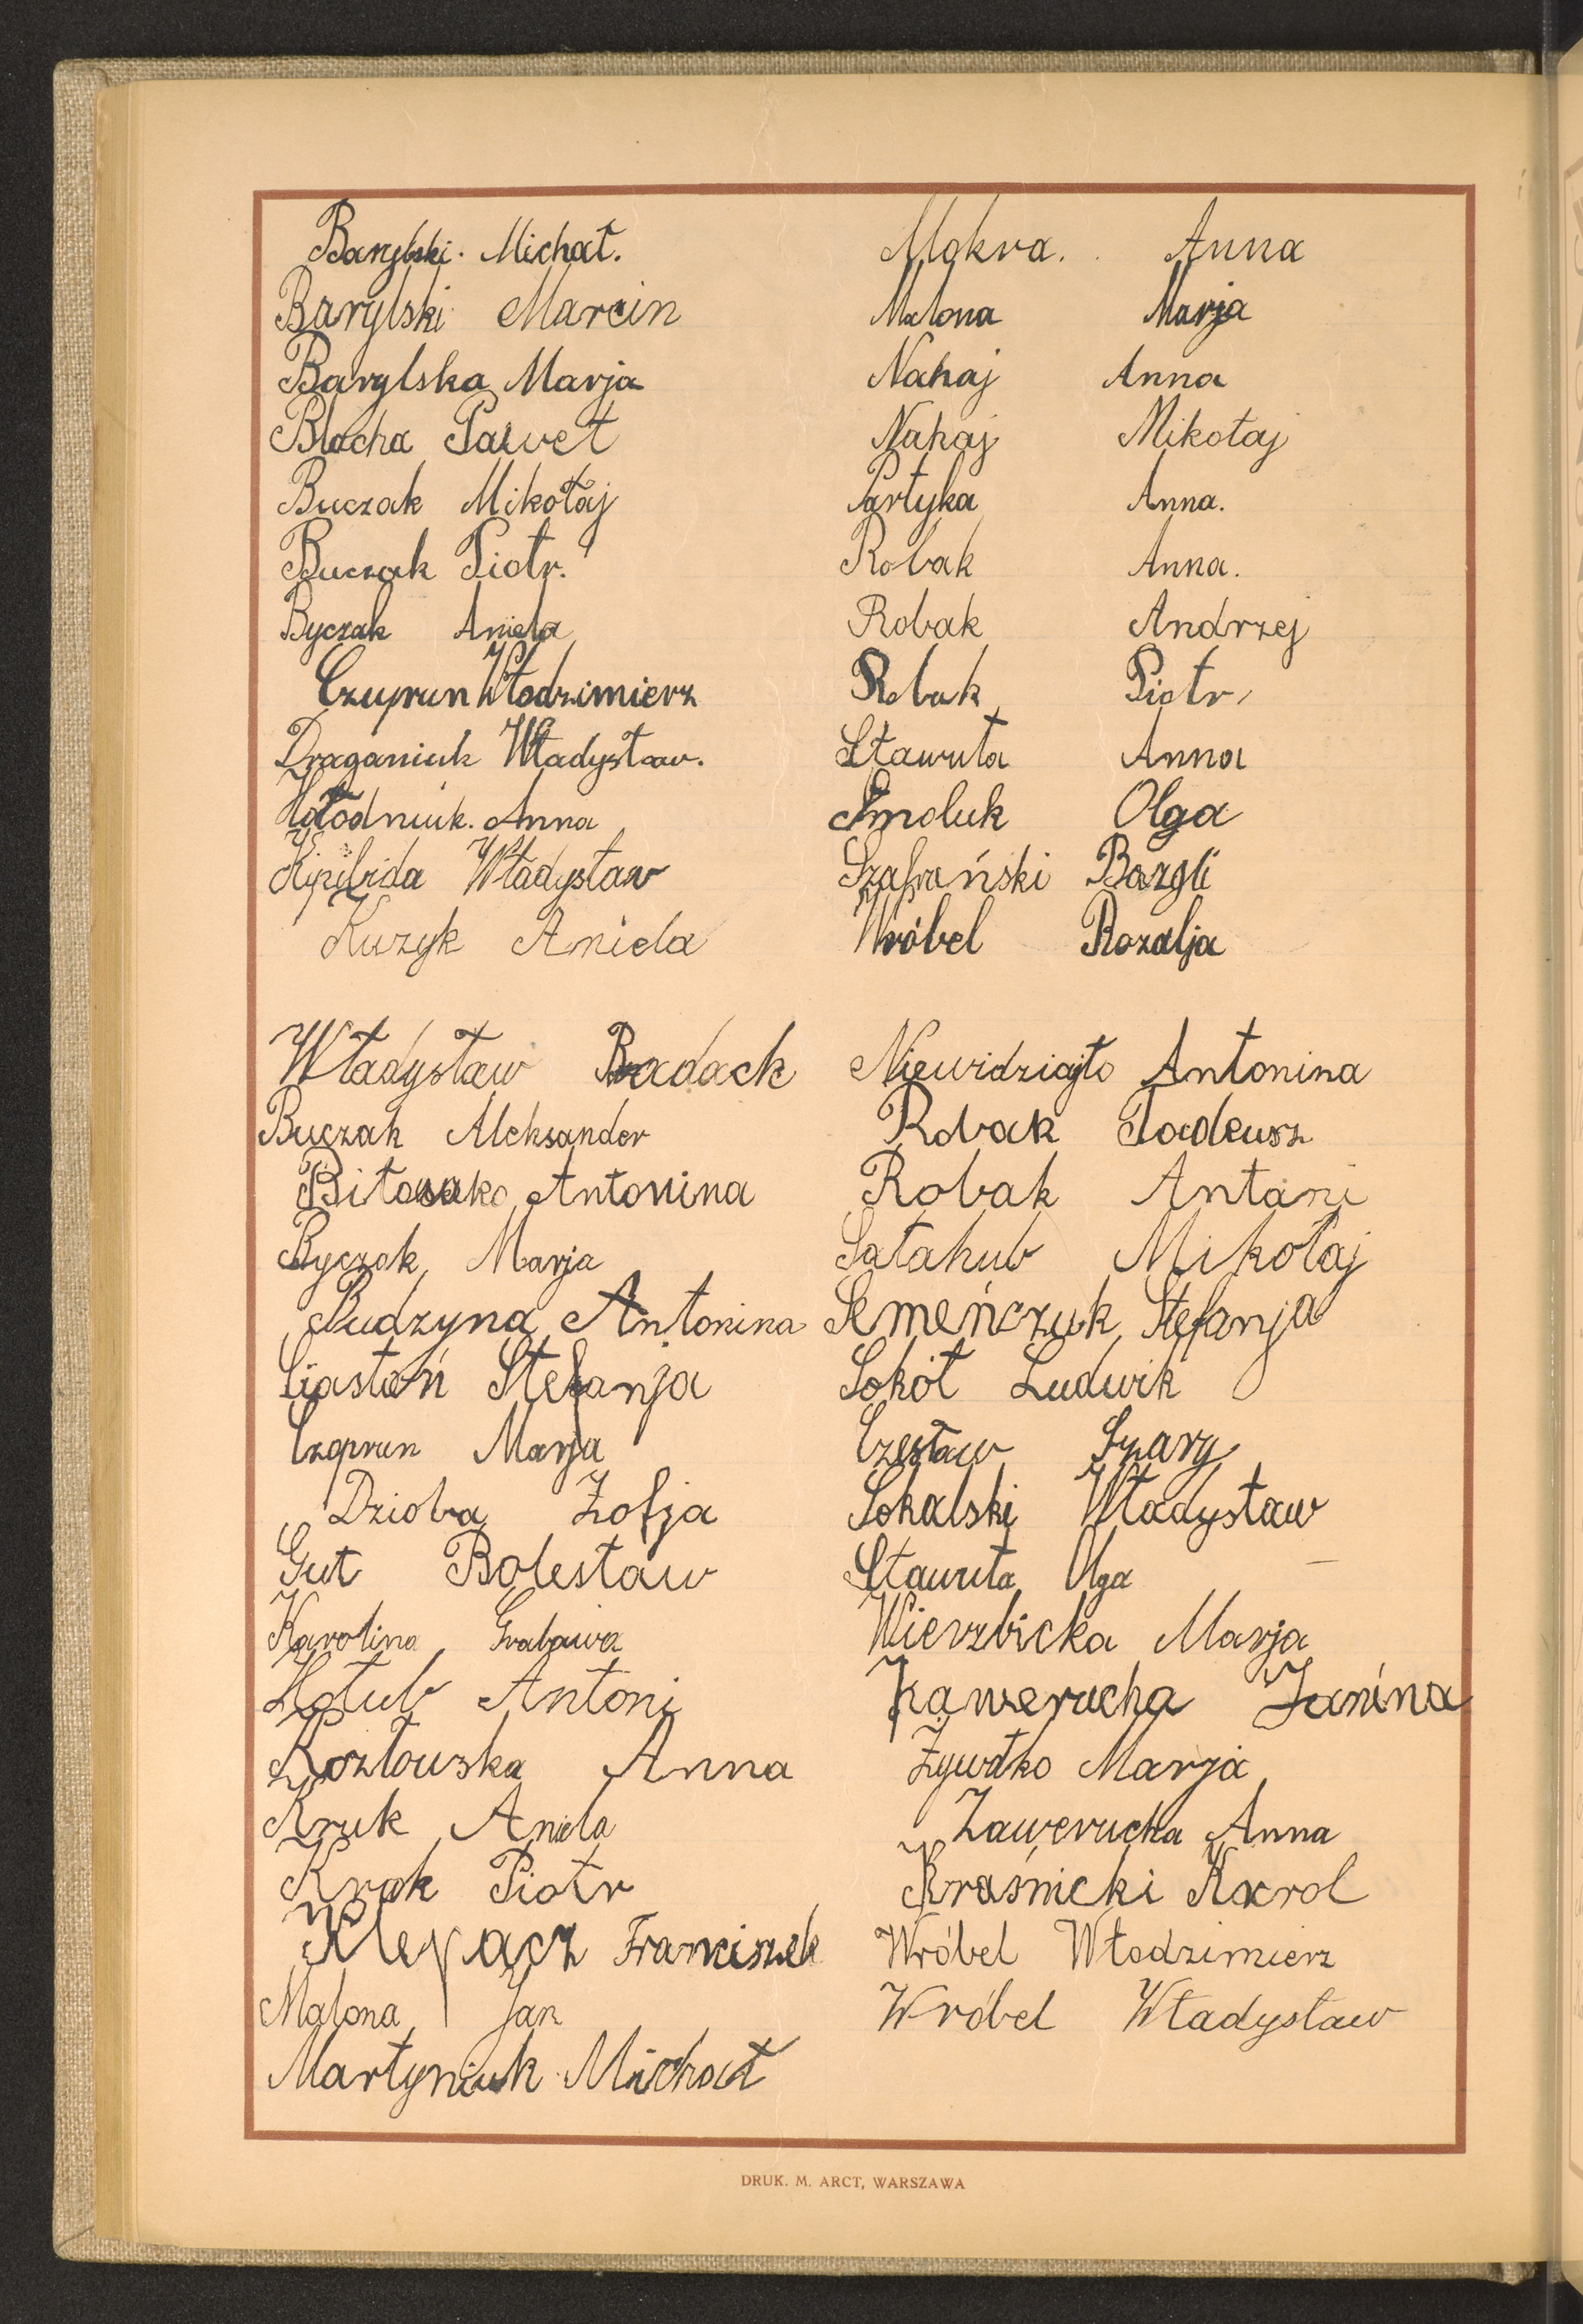 Barylski. Michał.
Barylski Marcin
Barylska Marja
Blacha Paweł
Buczak Mikołaj
Buczak Piotr.
Byczak Aniela
Czuprun Włodzimierz
Draganiuk Władysław.
Hołodniuk. Anna
Kipibida Władysław
Kuzyk Aniela
Mokra. Anna
Malona Marja
Nahaj Anna
Nahaj Mikołaj
Partyka Anna.
Robak Anna.
Robak Andrzej
Robak Piotr
Stawuta Anna
Smoluk Olga
Szafrański Bazyli
Wróbel Rozalja
Władysław Badack
Buczak Aleksander
Antonina
Byczak Marja
Budzyna Antonina
Ciastoń Stefanja
Czoprun Marja
Dzioba Zofja
Gut Bolesław
Karolina Grabawa
Hołub Antoni
Kozłowska Anna
Kruk Aniela
Kruk Piotr
Klepacz Franciszek
Malona Jan
Martyniuk Michał
Niewidziajło Antonina
Robak Tadeusz
Robak Antoni
Sałahub Mikołaj
Semeńczuk Stefanja
Sokół Ludwik
Czesław Szary
Sokalski Władysław
Stawuta Olga
Wierzbicka Marja
Kawerucha Janina
Żywałko Marja
Zawerucha Anna
Kraśnicki Karol
Wróbel Włodzimierz
Wróbel Władysław
DRUK. M. ARCT, WARSZAWA